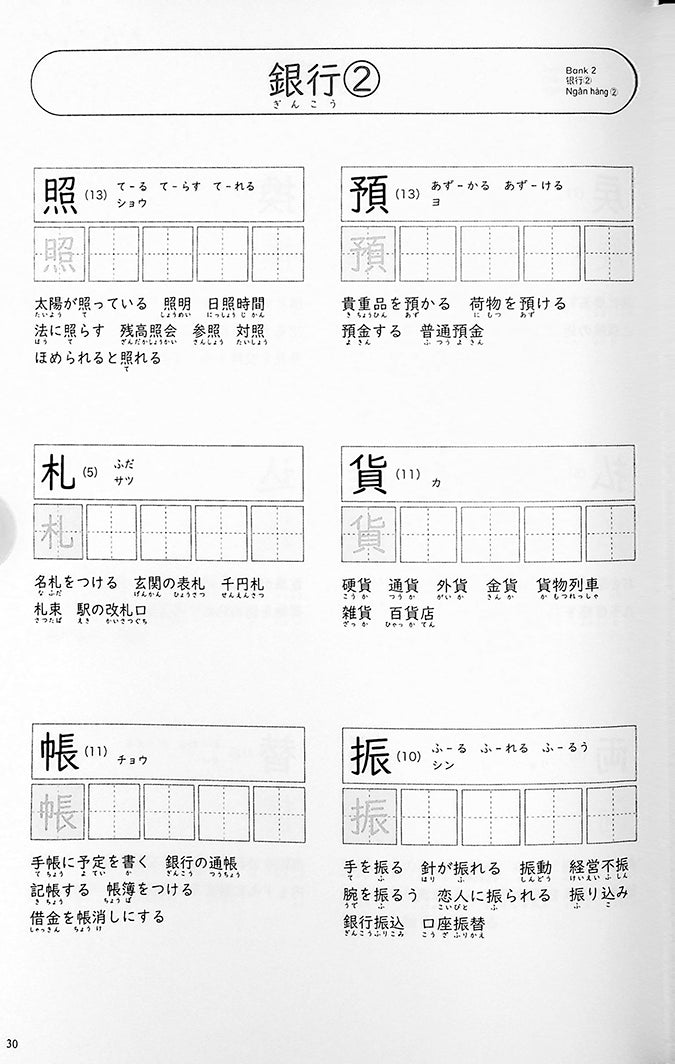 銀行②
ぎんこう
Bank 2
银行②
Ngân hàng②
照(13) て-る て-らす て-れる
ショウ
照
太陽が照っている 照明 日照時間
たいよう て しょうめい にっしょうじかん
法に照らす 残高照会 参照 対照
ほう て ざんだかしょうかい さんしょう たいしょう
ほめられると照れる
て
預(13) あず-かる あず-ける
ヨ
預
貴重品を預かる 荷物を預ける
きちょうひん あず にもつ あず
預金する 普通預金
よきん ふつうよきん
札(5) ふだ
サツ
札
名札をつける 玄関の表札 千円札
なふだ げんかん ひょうさつ せんえんさつ
札束 駅の改札口
さつたば えき かいさつぐち
貨(11) カ
貨
硬貨 通貨 外貨 金貨 貨物列車
こうか つうか がいか きんか かもつれっしゃ
雑貨 百貨店
ざっか ひゃっかてん
帳(11) チョウ
帳
手帳に予定を書く 銀行の通帳
てちょう よてい か ぎんこう つうちょう
記帳する 帳簿をつける
きちょう ちょうぼ
借金を帳消しにする
しゃっきん ちょうけ
振(10) ふ-る ふ-れる ふ-るう
シン
振
手を振る 針が振れる 振動 経営不振
て ふ はり ふ しんどう けいえいふしん
腕を振るう 恋人に振られる 振り込み
うで ふ こいびと ふ ふ こ
銀行振込 口座振替
ぎんこうふりこみ こうざふりかえ
30